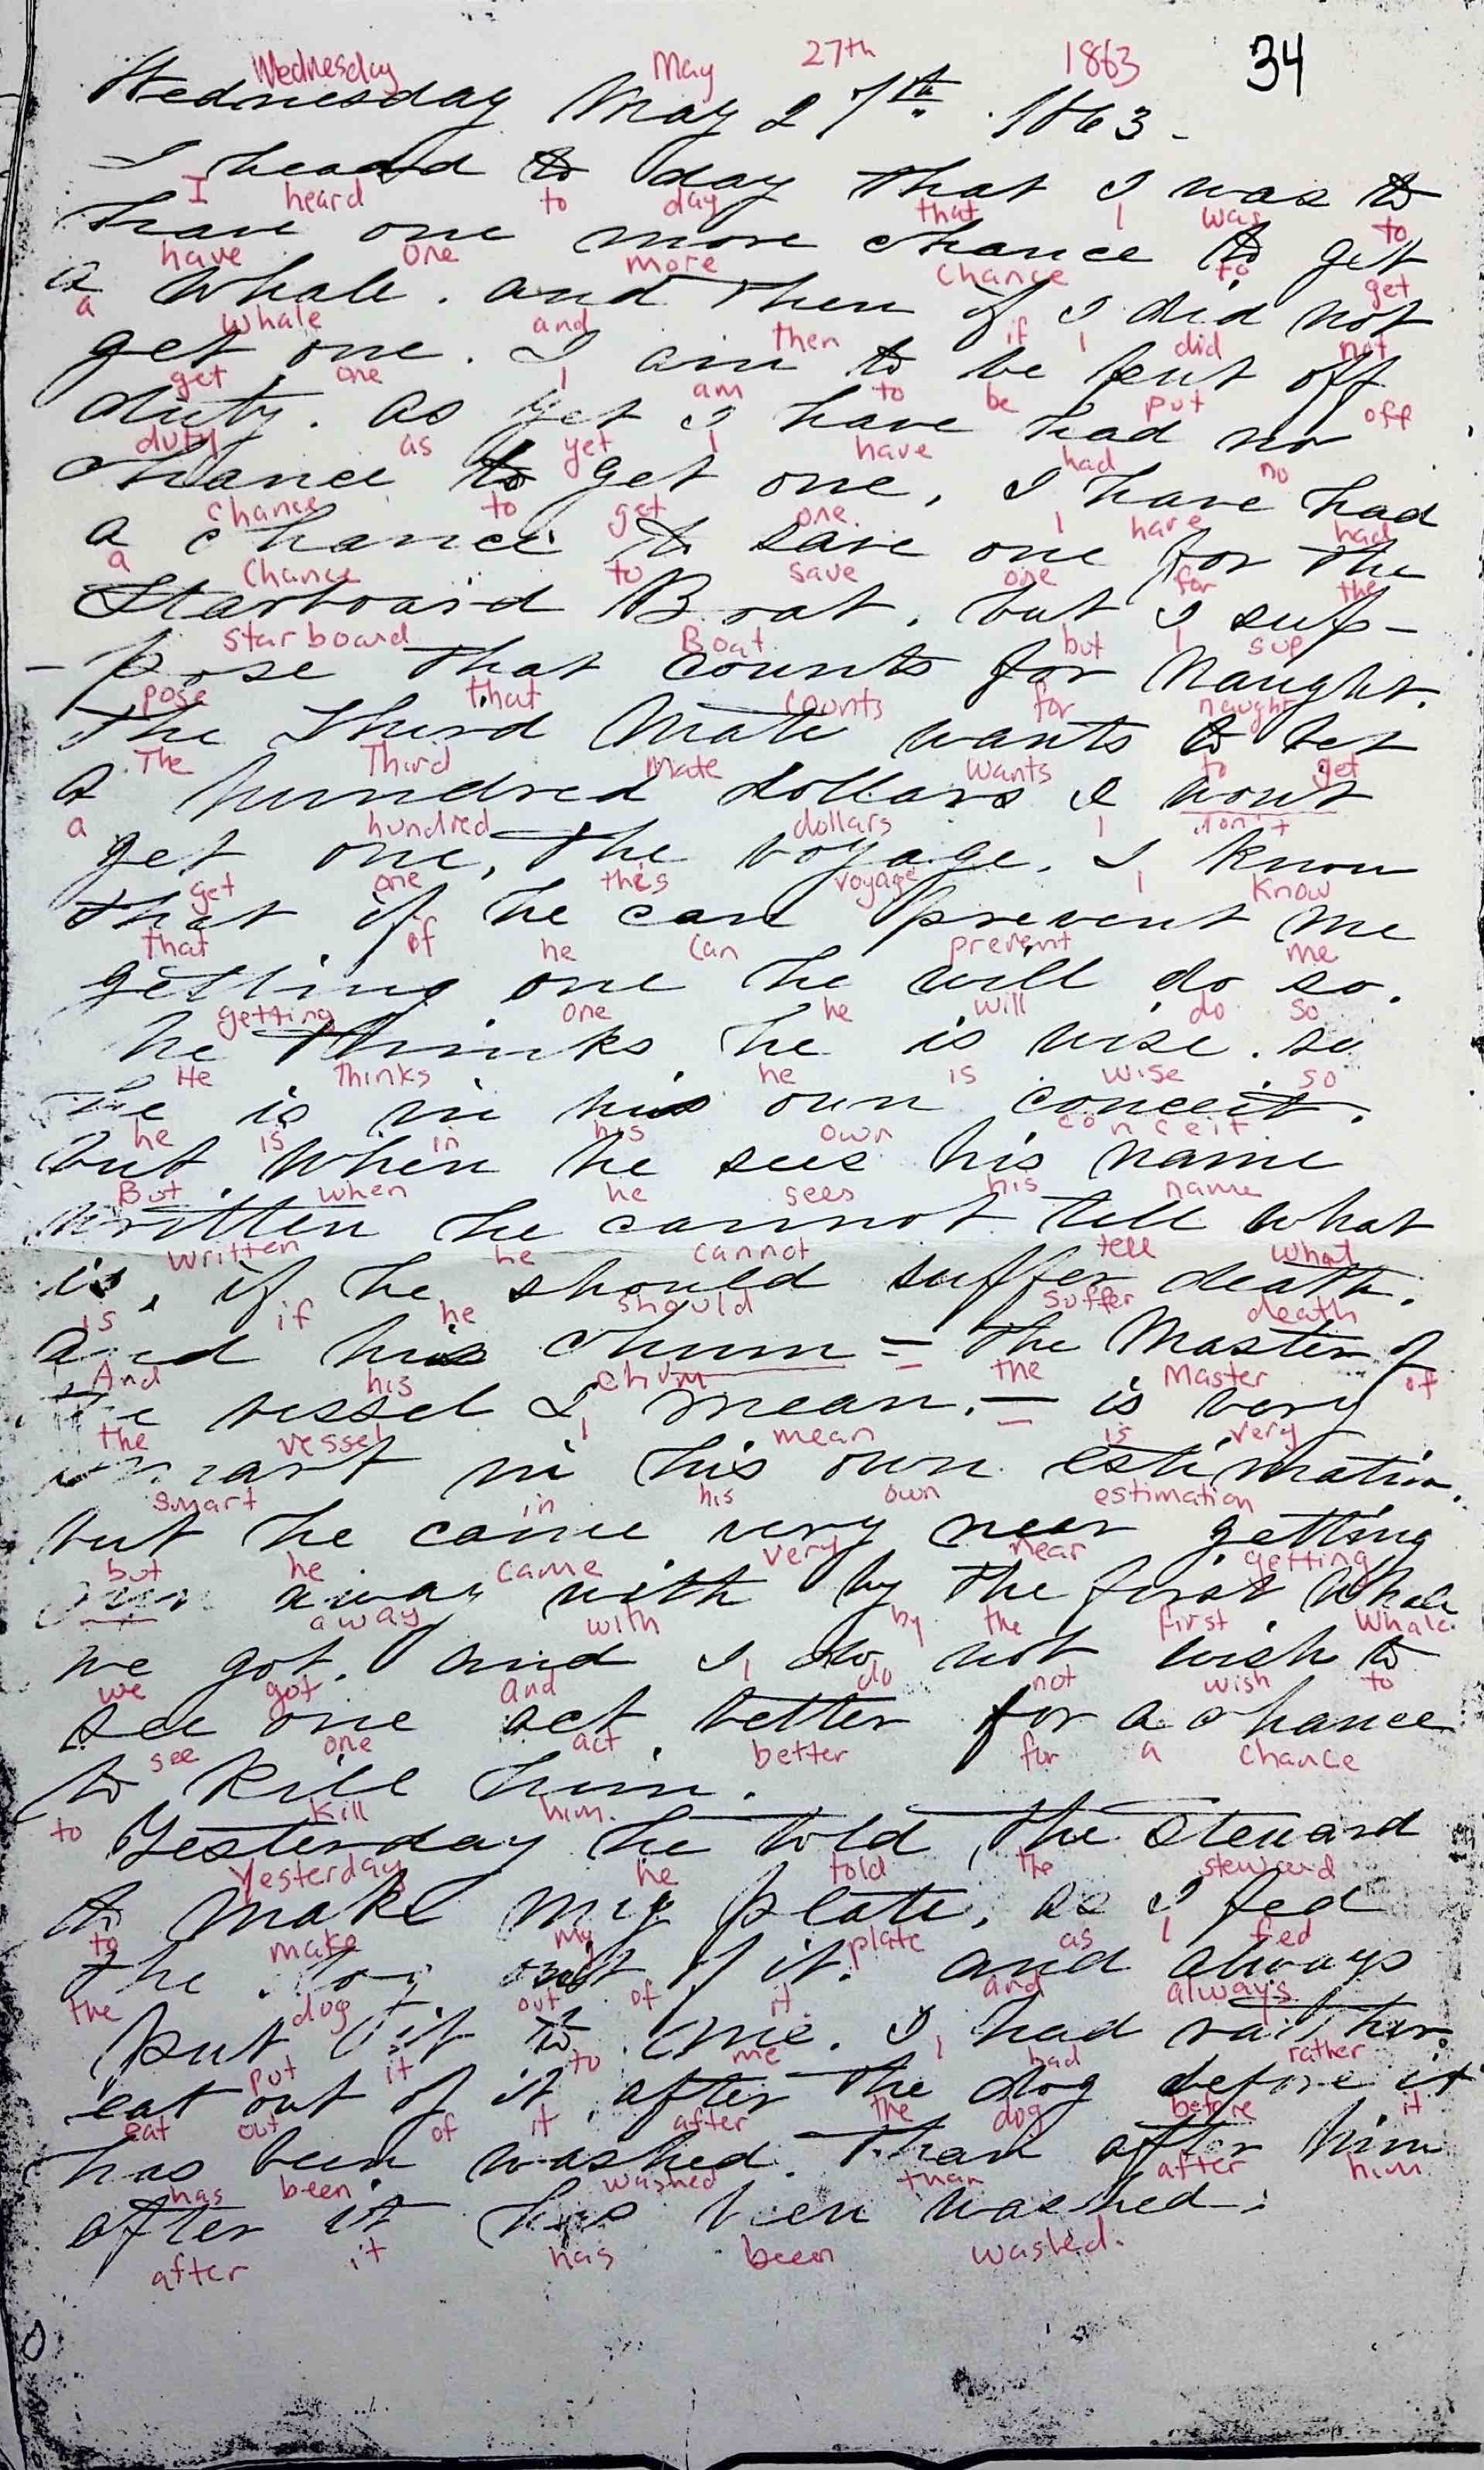 Wednesday May 27th 1863 34
Wednesday May 27th. 1863-
I heard to day that I was to
I heard to day that I was to
have one more chance to get
have one more chance to get
a Whale. and then if I did not
a Whale and then if I did not
get one. I am to be put off
get one I am to be put off
duty. as yet I have had no
duty as yet I have had no
chance to get one, I have had
Chance to get one. I have had
a chance to save one for the
a Chance to save one for the
Starboard Boat, but I sup-
starboard Boat. but I sup
-pose that counts for Naught.
pose that counts for naught
The Third Mate wants to bet
The Third Mate wants to get
a hundred dollars I wont
a hundred dollars I won't
get one, the voyage. I know
get one this voyage I know
that if he can prevent me
that if he can prevent me
getting one he will do so.
getting one he will do so
he thinks he is wise. so
He Thinks he is wise so
he is in his own conceit.
he is in his own conceit.
but when he sees his name
But when he sees his name
written he cannot tell what
written he cannot tell what
is, if he should suffer death.
is if he should suffer death
and his chum = the Master of
And his chum = the Master of
the vessel I mean. - is very
the vessel I mean - is very
smart in his own estimation.
smart in his own estimation
but he came very near getting
but he came very near getting
away with by the first Whale
away with by the first Whale.
we got. and I do not wish to
we got and I do not wish to
see one act better for a chance
see one act better for a chance
to kill him.
to kill him.
Yesterday he told the Steward
Yesterday he told the steward
to make my plate, as I fed
to make my plate as I fed
the dog out of it. and always
the dog out of it and always
put it to me. I had rather
put it to me I had rather
eat out of it after the dog before it
eat out of it after the dog before it
has been washed. than after him
has been washed than after him
after it has been washed.
after it has been washed.